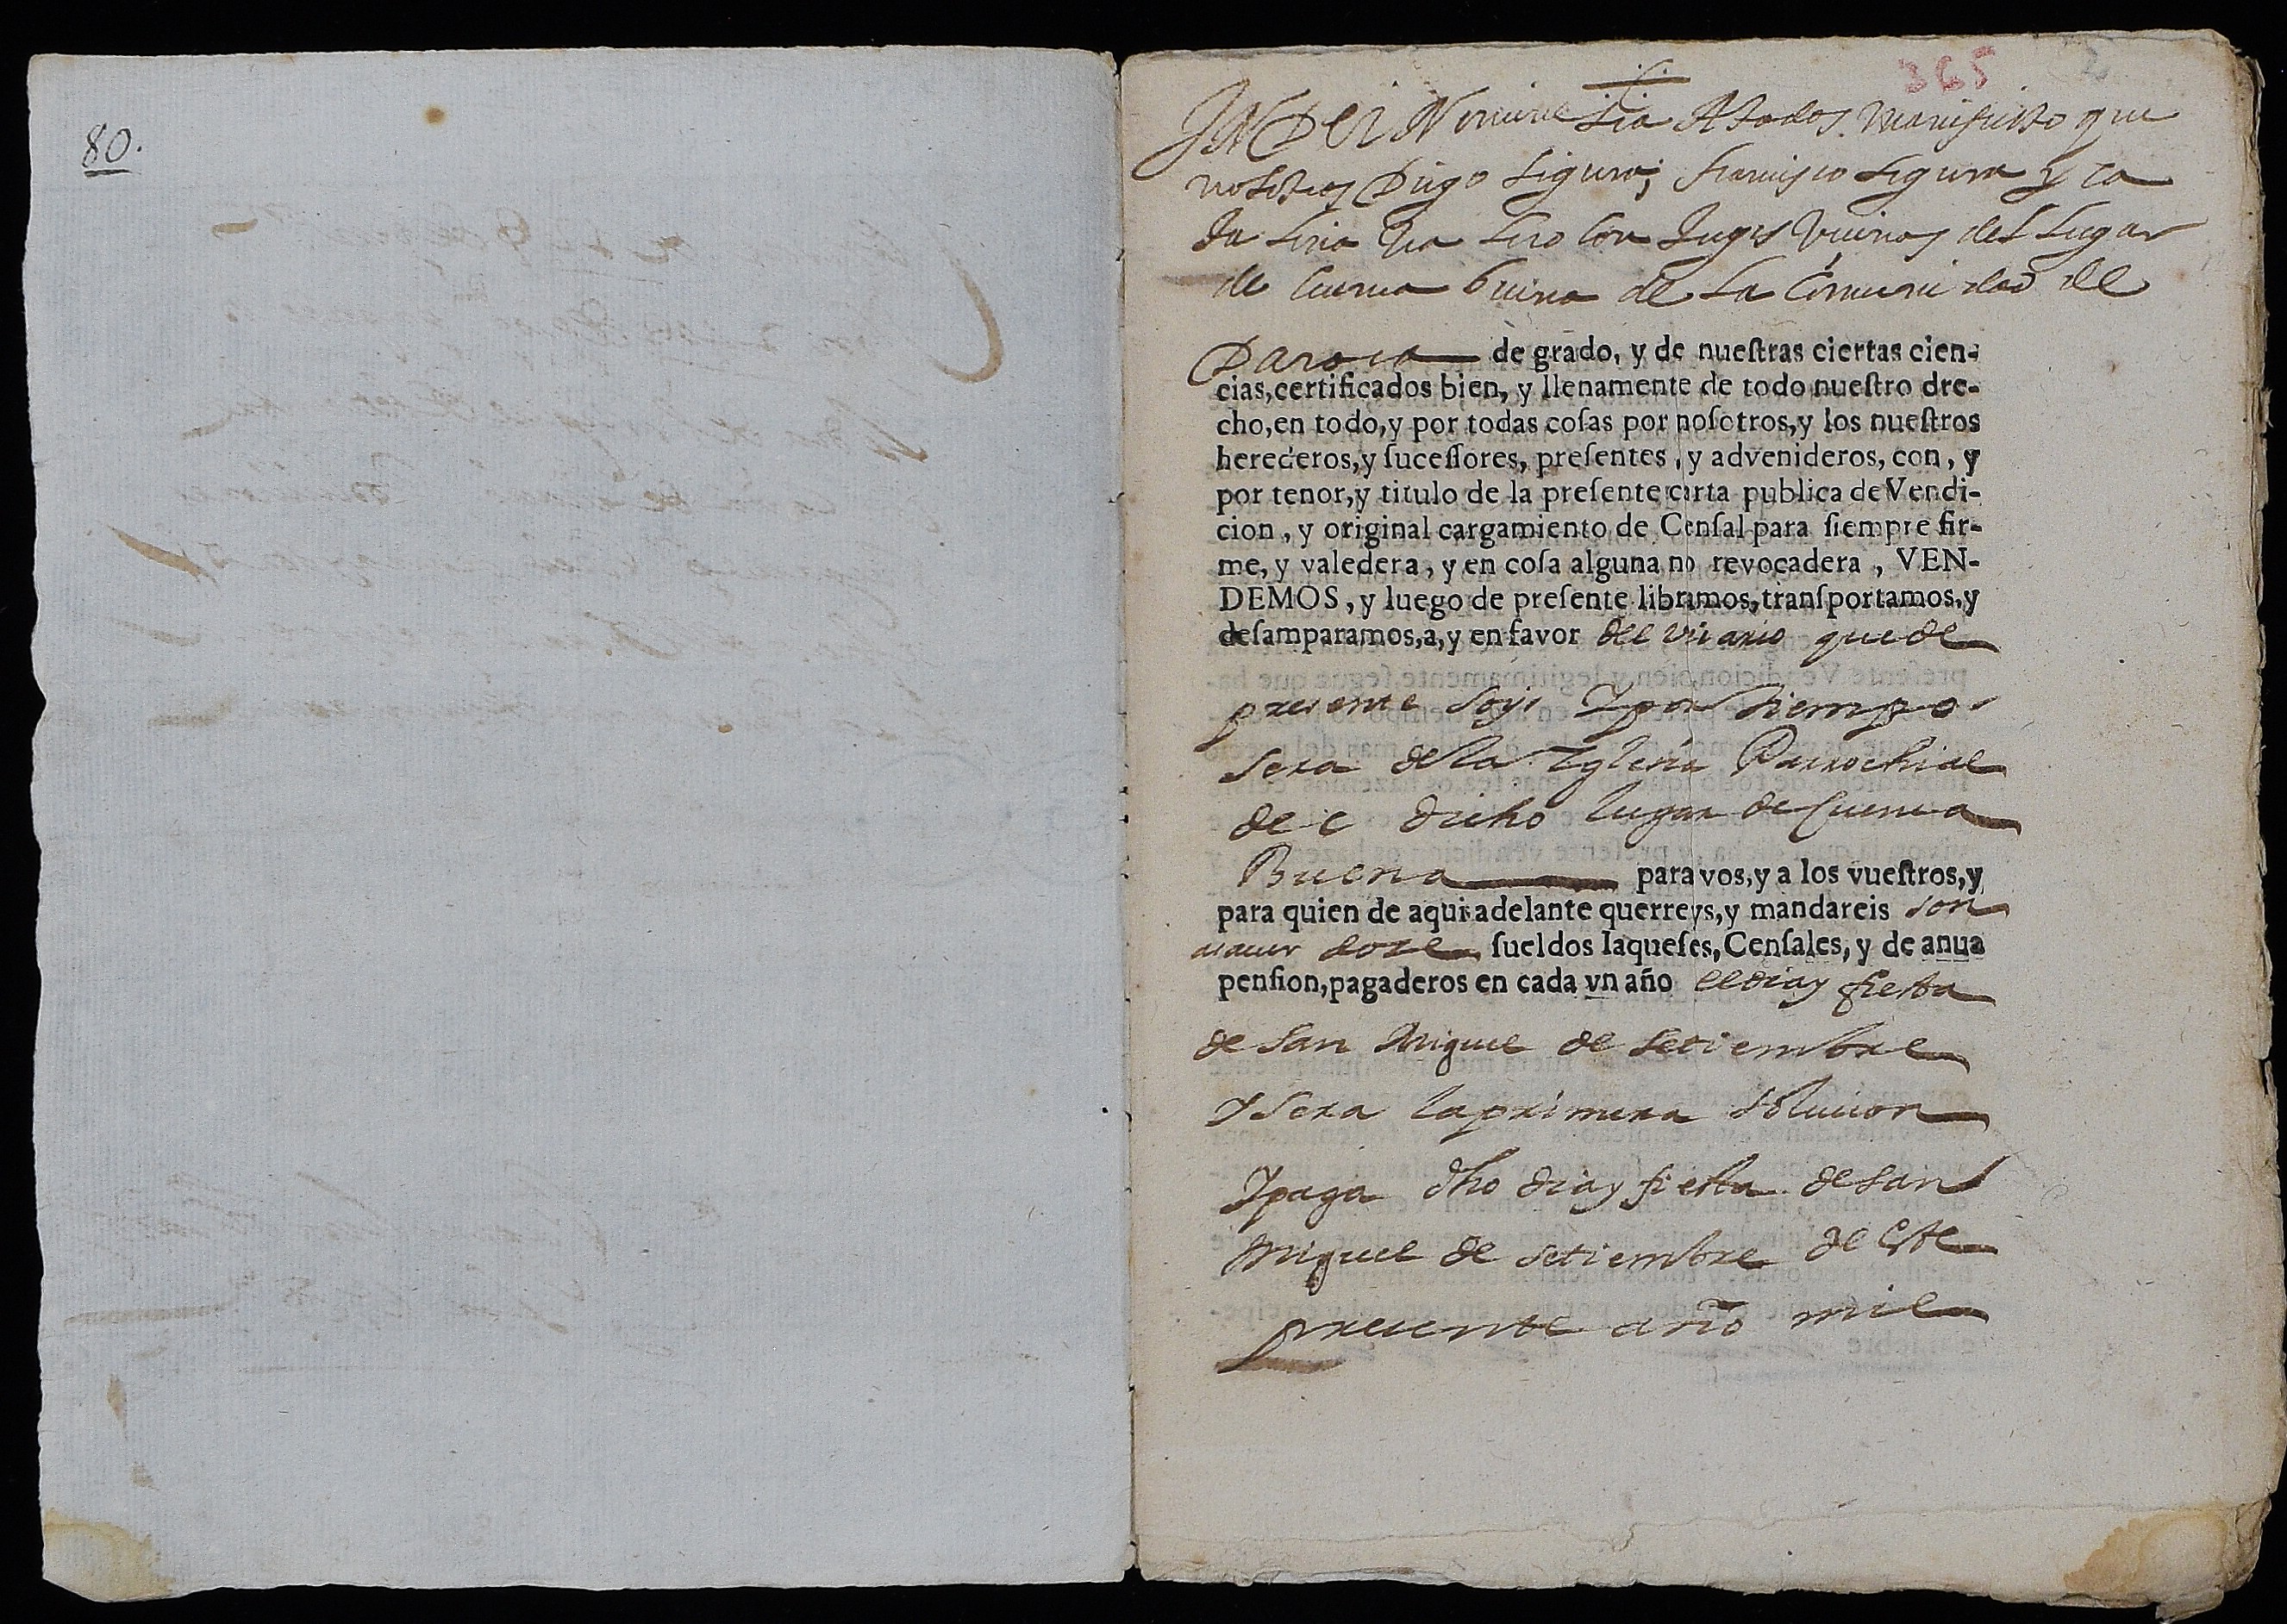 80.
365 2
IN DEI Nomine sia A todos manifiesto que
nosotros Diego Segura; francisco segura y ca
ta lina con Juges vecinos del Lugar
de Cuenca buena de La Comuni dad de
Daroca de grado, y de nueſtras ciertas cien-
cias,certificados bien, y llenamente de todo nueſtro dre-
cho,en todo,y por todas coſas por noſotros,y los nueſtros
herederos,y ſuceſſores, preſentes, y advenideros, con, y
por tenor,y titulo de la preſente carta publica de Vendi-
cion, y original cargamiento de Cenſal para ſiempre fir-
me, y valedera, y en coſa alguna no revocadera, VEN-
DEMOS, y luego de preſente libramos,tranſportamos,y
deſamparamos,a,y en favor del vicario que de
presente soys Y por tiempo
sera de la Iglesia Parrochial
de e dicho lugar de Cuenca
Buena para vos,y a los vueſtros,y
para quien de aqui adelante querreys,y mandareis son
asauer doze ſueldos Iaqueſes,Cenſales, y de anua
penſion,pagaderos en cada vn año el dia y fiesta
de san Miguel de setiembre
Y sera la primera solucion
Y paga dho dia y fiesta de san
Miguel de setiembre de este
presente año mil